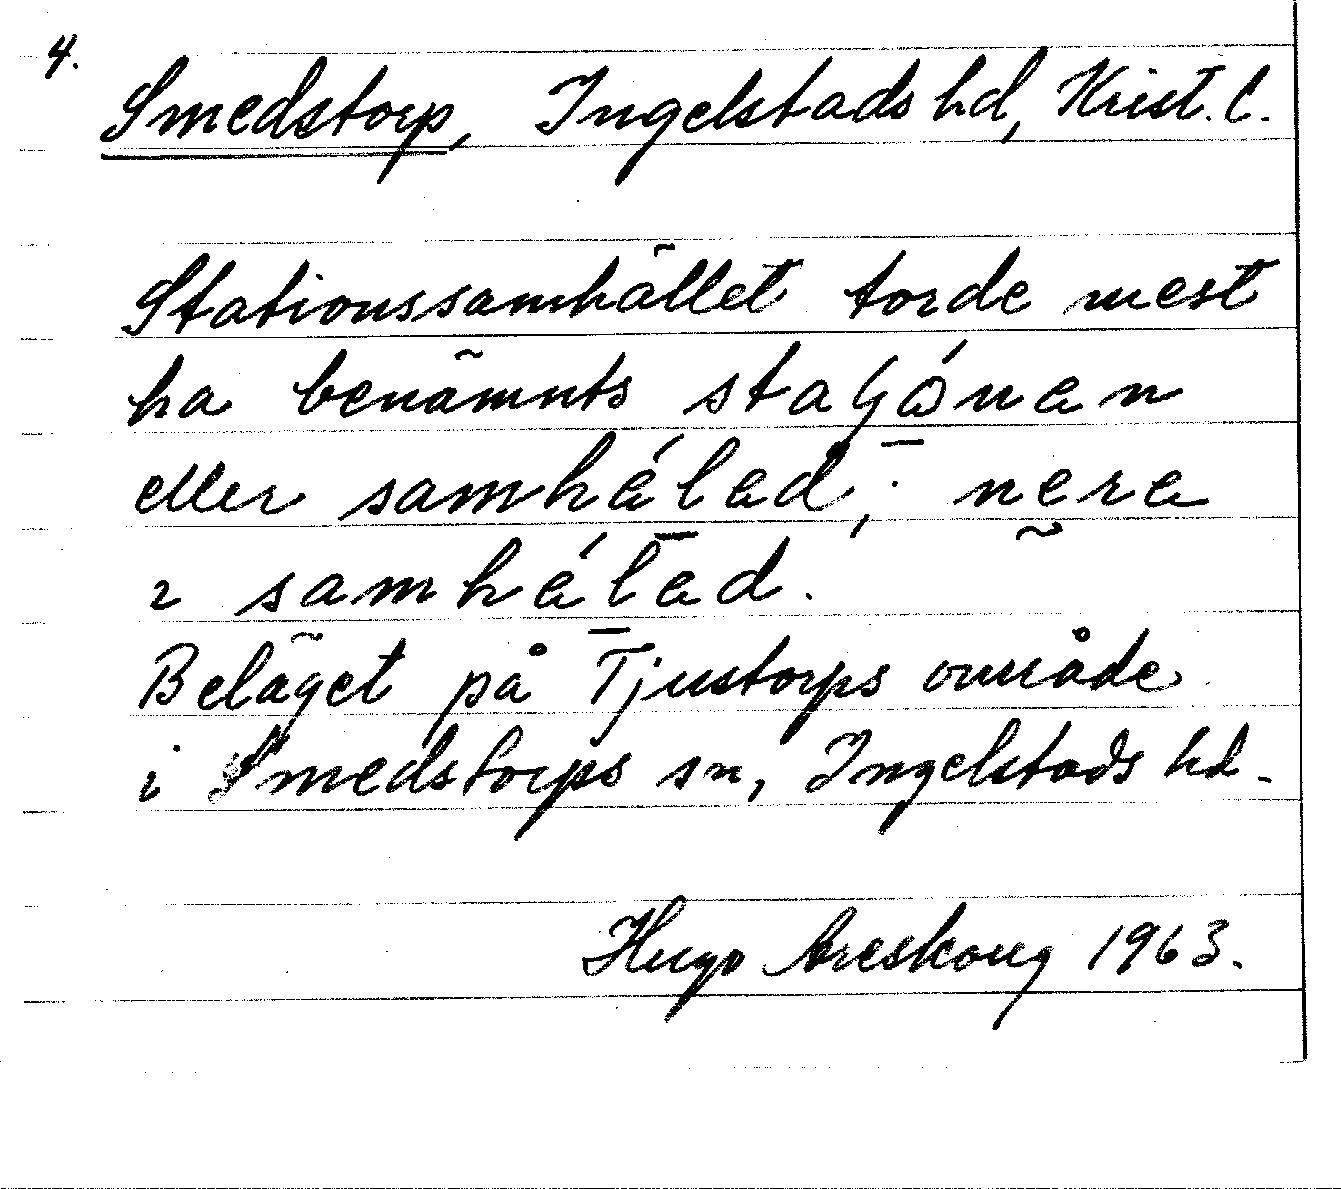 4.
Smedstorp, Ingelstads hd, Krist. l.
Stationssamhället torde mest
ha benämnts
eller samhálad, nera
samhálad.
Beläget på Tjustorps område
i Smedstorps sn, Ingelstads hd.
Hugo Areskoug 1963.